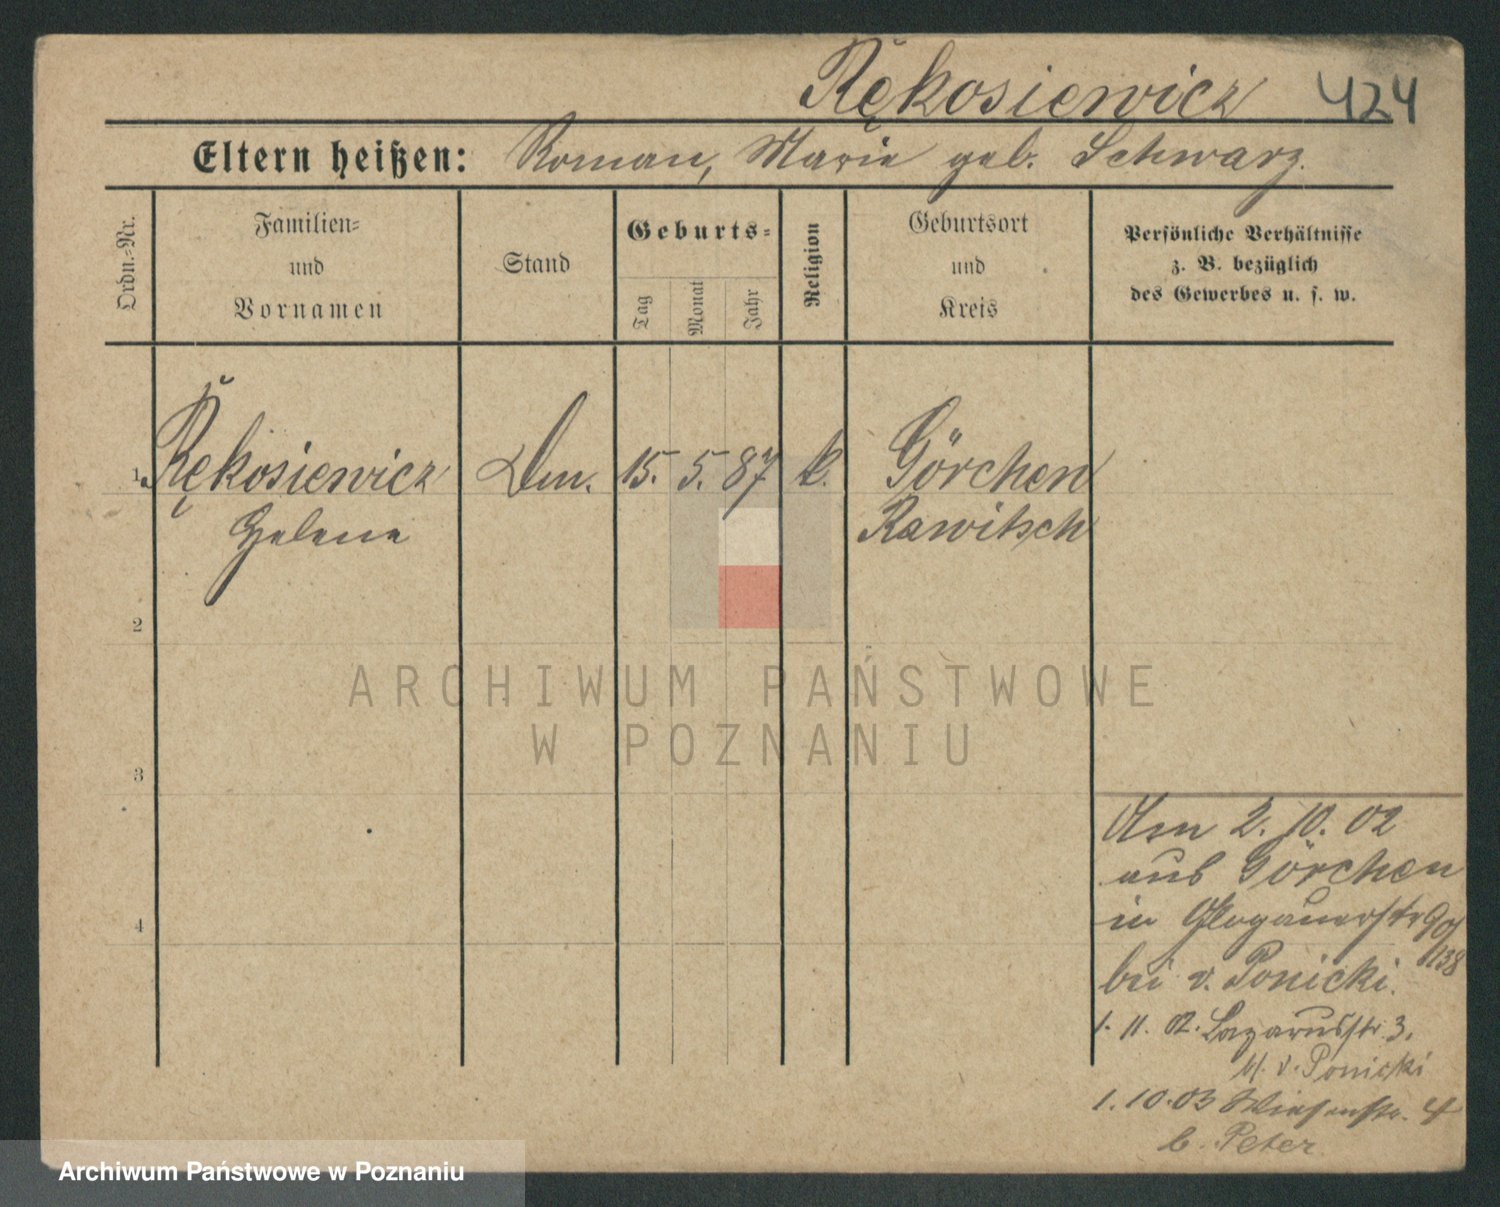 Rękosiewicz 424
Eltern heißen: Roman, Marie geb. Schwarz.
Ordn.-Nr.
Familien-
und
Vornamen
Stand
Geburts-
Tag
Monat
Jahr
Religion
Geburtsort
und
Kreis
Persönliche Verhältnisse
z. B. bezüglich
des Gewerbes u. s. w.
1. Rękosiewicz Dm. 15. 5. 87 k. Görchen
Helene Rawitsch
2
3
4
Am 2. 10. 02
aus Görchen
in Glogauerstr 90/
138
bei v. Ponicki.
1. 11. 02. Lazarusstr. 3.
b/. v. Ponicki
1. 10. 03 Wiesenstr. 4
b. Peter
ARCHIWUM PAŃSTWOWE
W POZNANIU
Archiwum Państwowe w Poznaniu